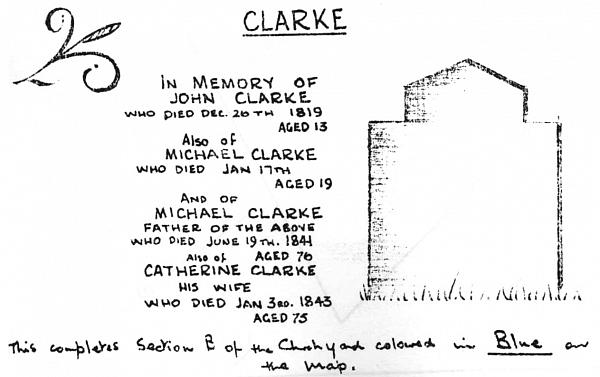 CLARKE
IN MEMORY OF
JOHN CLARKE
WHO DIED DEC. 26TH 1819
AGED 13
Also of
MICHAEL CLARKE
WHO DIED JAN 17TH
AGED 19
AND OF
MICHAEL CLARKE
FATHER OF THE ABOVE
WHO DIED JUNE 19TH. 1841
Also of AGED 76
CATHERINE CLARKE
HIS WIFE
WHO DIED JAN 3RD. 1843
AGED 75
This completes Section B of the Churchyard coloured in Blue on
the map.